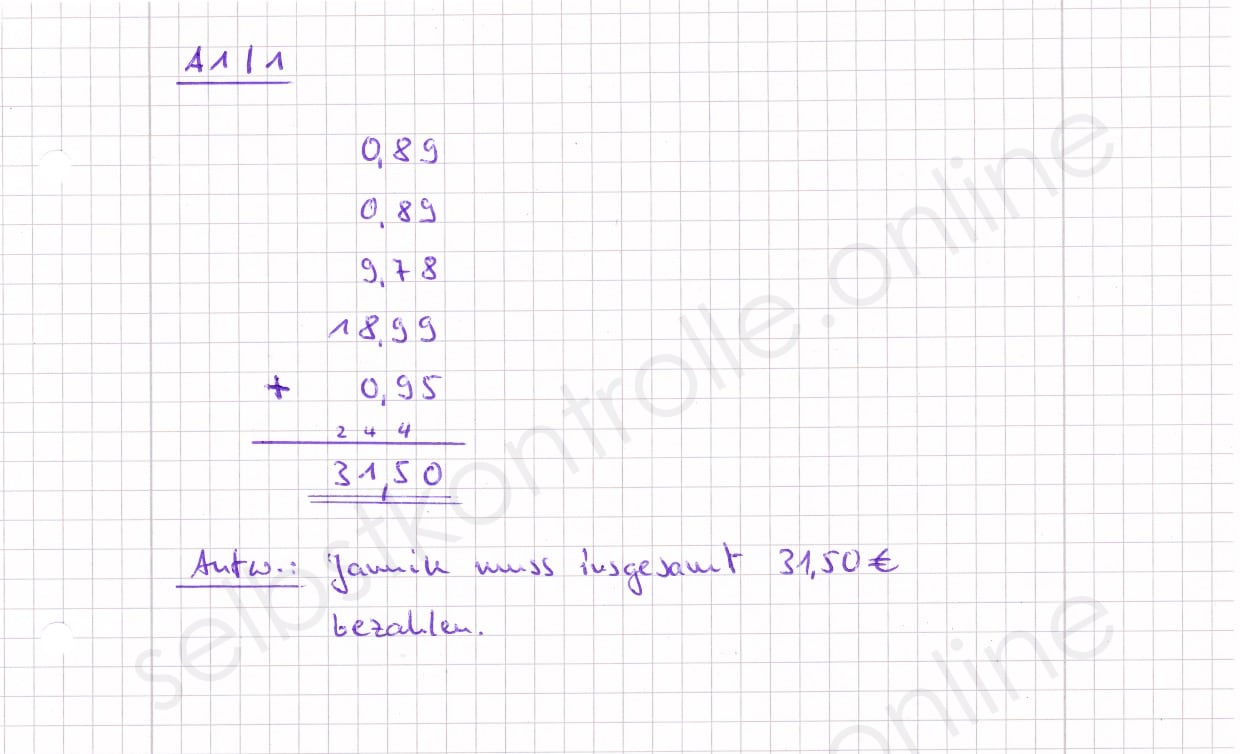 A1/1
0,89
0,89
9,78
18,99
+ 0,95
2 4 4
31,50
Antw.: Jannik muss insgesamt 31,50 €
bezahlen.
selbstkontrolle.online
online